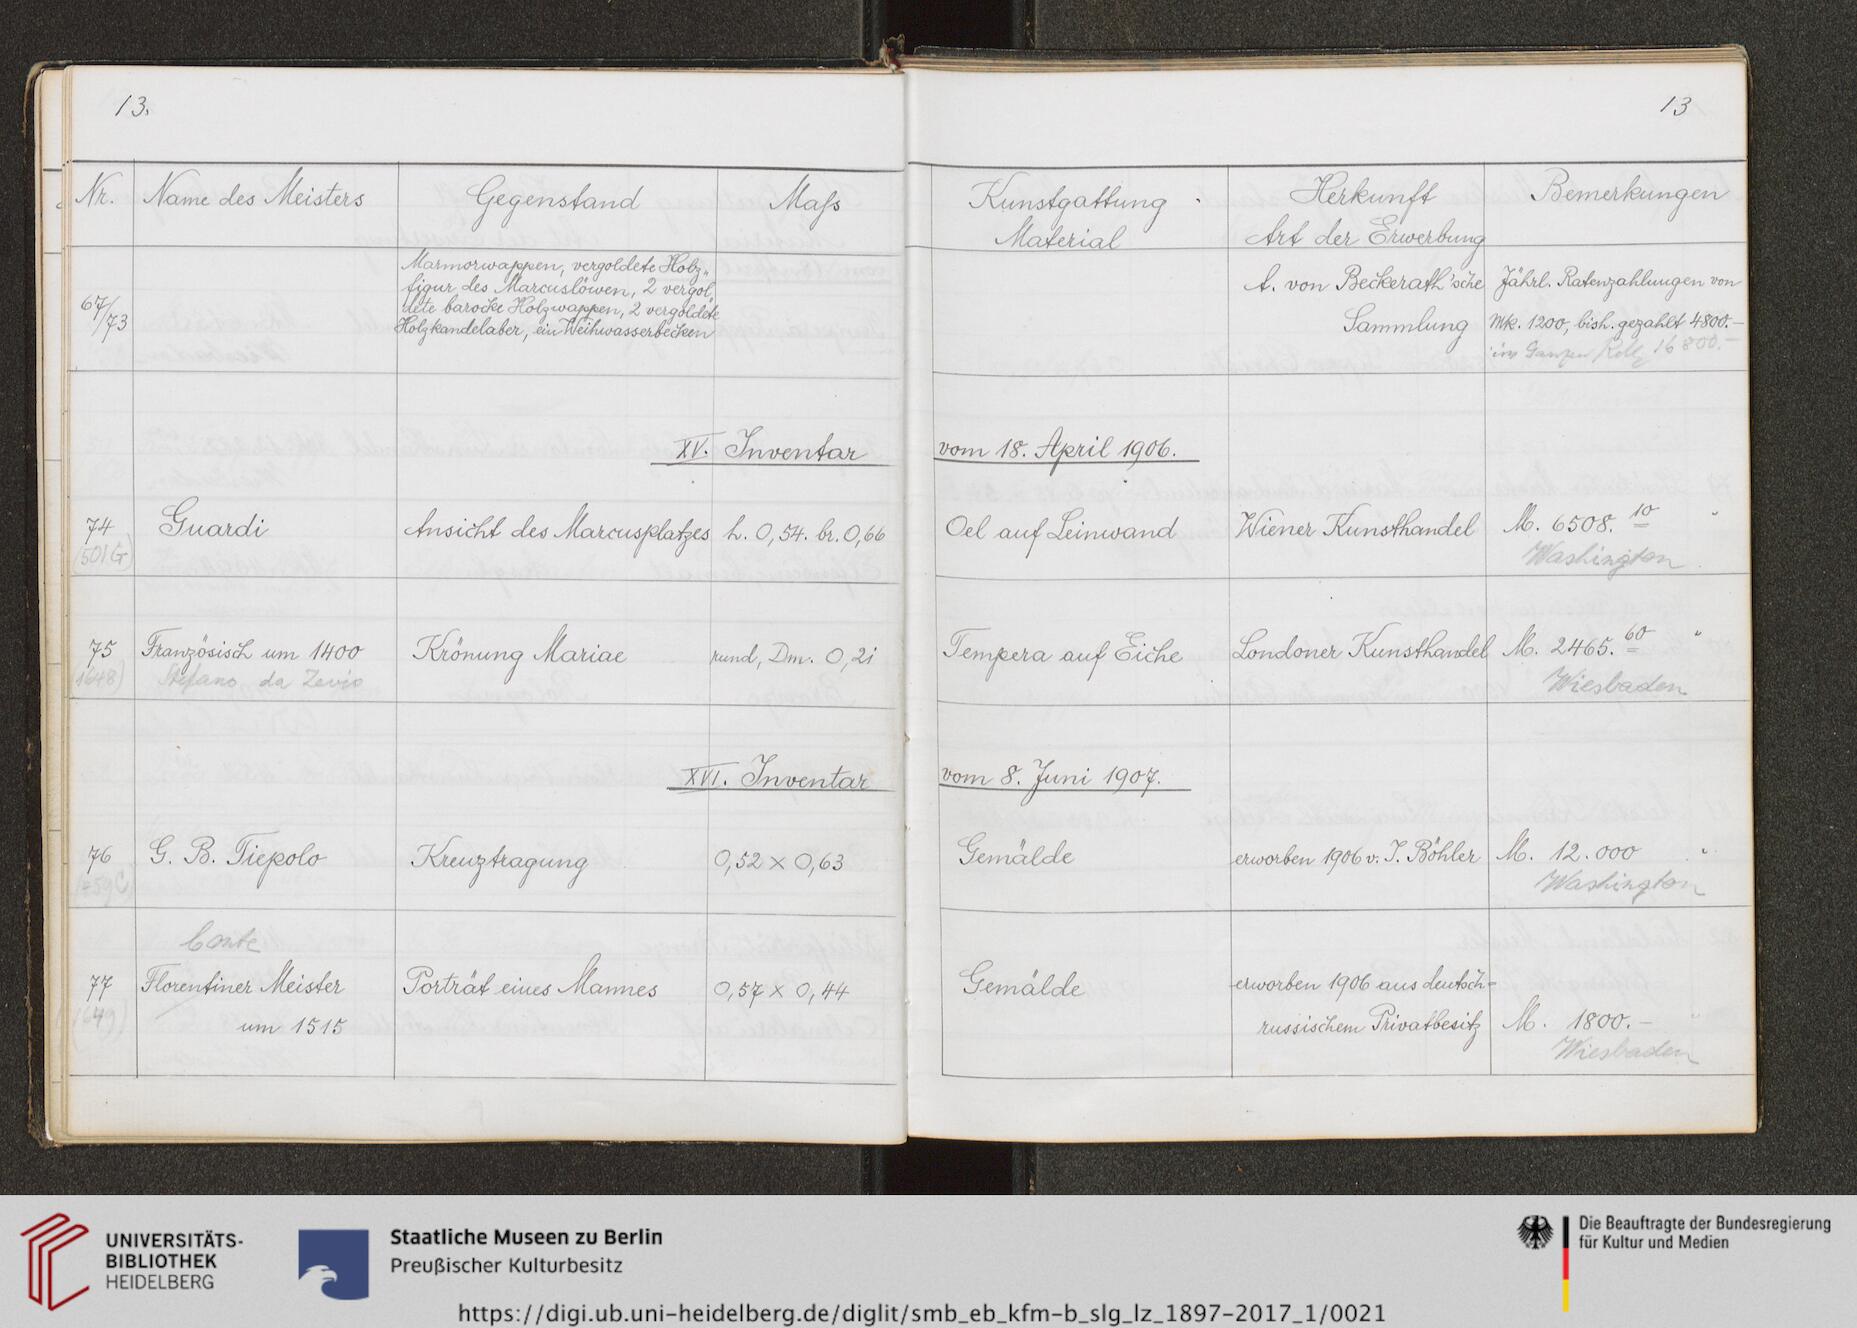 13.
13
Nr. Name des Meisters Gegenstand Mass Kunstgattung Material Herkunft Art der Erwerbung Bemerkungen
67/73
Marmorwappen, vergoldete Holz-
figur des Marcuslöwen, 2 vergol-
dete barocke Holzwappen, 2 vergoldete
Holzkandelaber, ein Weihwasserbecken
A. von Beckerath'sche
Sammlung
Jährl. Ratenzahlungen von
Mk. 1200, bish. gezahlt 4800.-
im Ganzen 16800.-
XV. Inventar vom 18. April 1906.
74 Guardi Ansicht des Marcusplatzes h. 0,54. br. 0,66 Oel auf Leinwand Wiener Kunsthandel M. 6508.10 "
(501G) Washington
75 Französisch um 1400 Krönung Mariae rund, Dm. 0,21 Tempera auf Eiche Londoner Kunsthandel M. 2465.60 "
(1648) Stefano da Zevio Wiesbaden
XVI. Inventar vom 8. Juni 1907.
76 G. B. Tiepolo Kreuztragung 0,52 x 0,63 Gemälde erworben 1906 v. J. Böhler M. 12.000 "
(459C) Washington
Conte
77 Florentiner Meister Porträt eines Mannes 0,57 x 0,44 Gemälde erworben 1906 aus deutsch-
(1649) um 1515 russischem Privatbesitz M. 1800.- "
Wiesbaden
UNIVERSITÄTS-
BIBLIOTHEK
HEIDELBERG
Staatliche Museen zu Berlin
Preußischer Kulturbesitz
Die Beauftragte der Bundesregierung
für Kultur und Medien
https://digi.ub.uni-heidelberg.de/diglit/smb_eb_kfm-b_slg_lz_1897-2017_1/0021